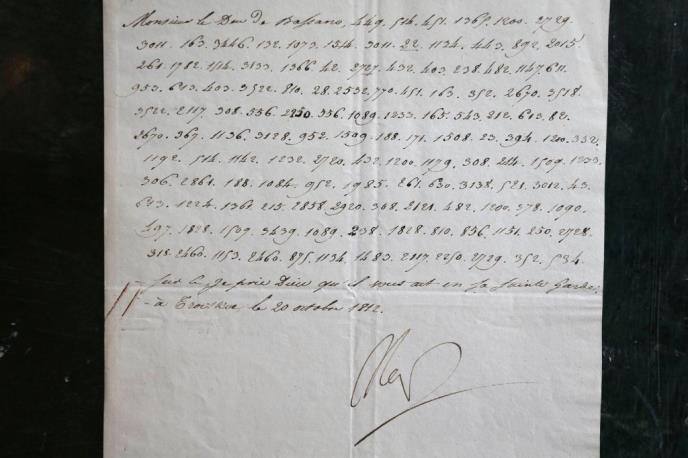 Monsieur le Duc de Bassano, 449. 514. 451. 1365. 1200. 2729.
3011. 163. 3446. 132. 1073. 1514. 3011. 22. 1134. 443. 892. 2015.
261. 1782. 144. 3133. 1366. 42. 2727. 432. 403. 238. 482. 1147. 611.
953. 613. 403. 3522. 810. 28. 2532. 770. 451. 163. 352. 2670. 3518.
3522. 2117. 308. 556. 2250. 356. 1089. 1233. 165. 543. 212. 613. 82.
2670. 367. 1136. 3128. 952. 1509. 188. 171. 1508. 23. 394. 1200. 332.
1192. 514. 1142. 1232. 2720. 432. 1200. 1179. 308. 244. 1509. 1233.
306. 2861. 188. 1084. 952. 1985. 261. 630. 3138. 521. 3012. 43.
613. 1224. 1361. 215. 2858. 2920. 308. 2121. 482. 1200. 378. 1090.
497. 1828. 1539. 3439. 1089. 238. 1828. 810. 836. 1151. 250. 2728.
318. 2460. 1153. 2460. 875. 1134. 1483. 2117. 2250. 2729. 352. 534.
Sur ce Je prie Dieu qu'il vous ait en sa Sainte Garde,
à Troitskoe, le 20 octobre 1812.
Nap